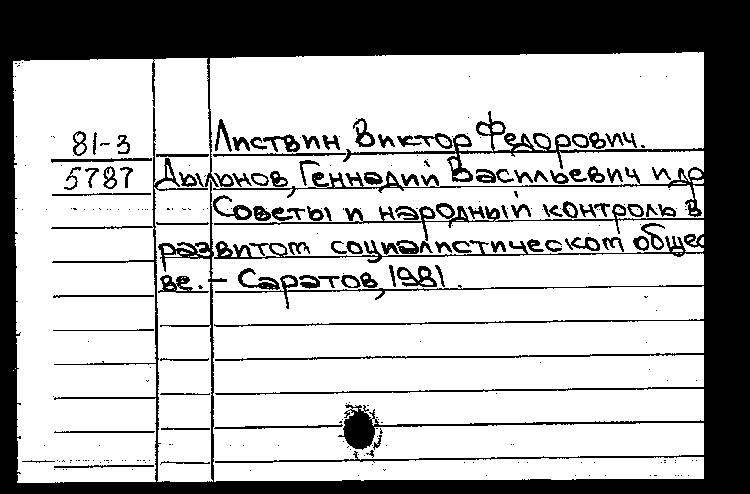 81-3 Листвин, Виктор Федорович.
5787 Дылынов, Геннадий Васильевич и др
Советы и народный контроль в
развитом социалистическом общес
ве. – Саратов, 1981.